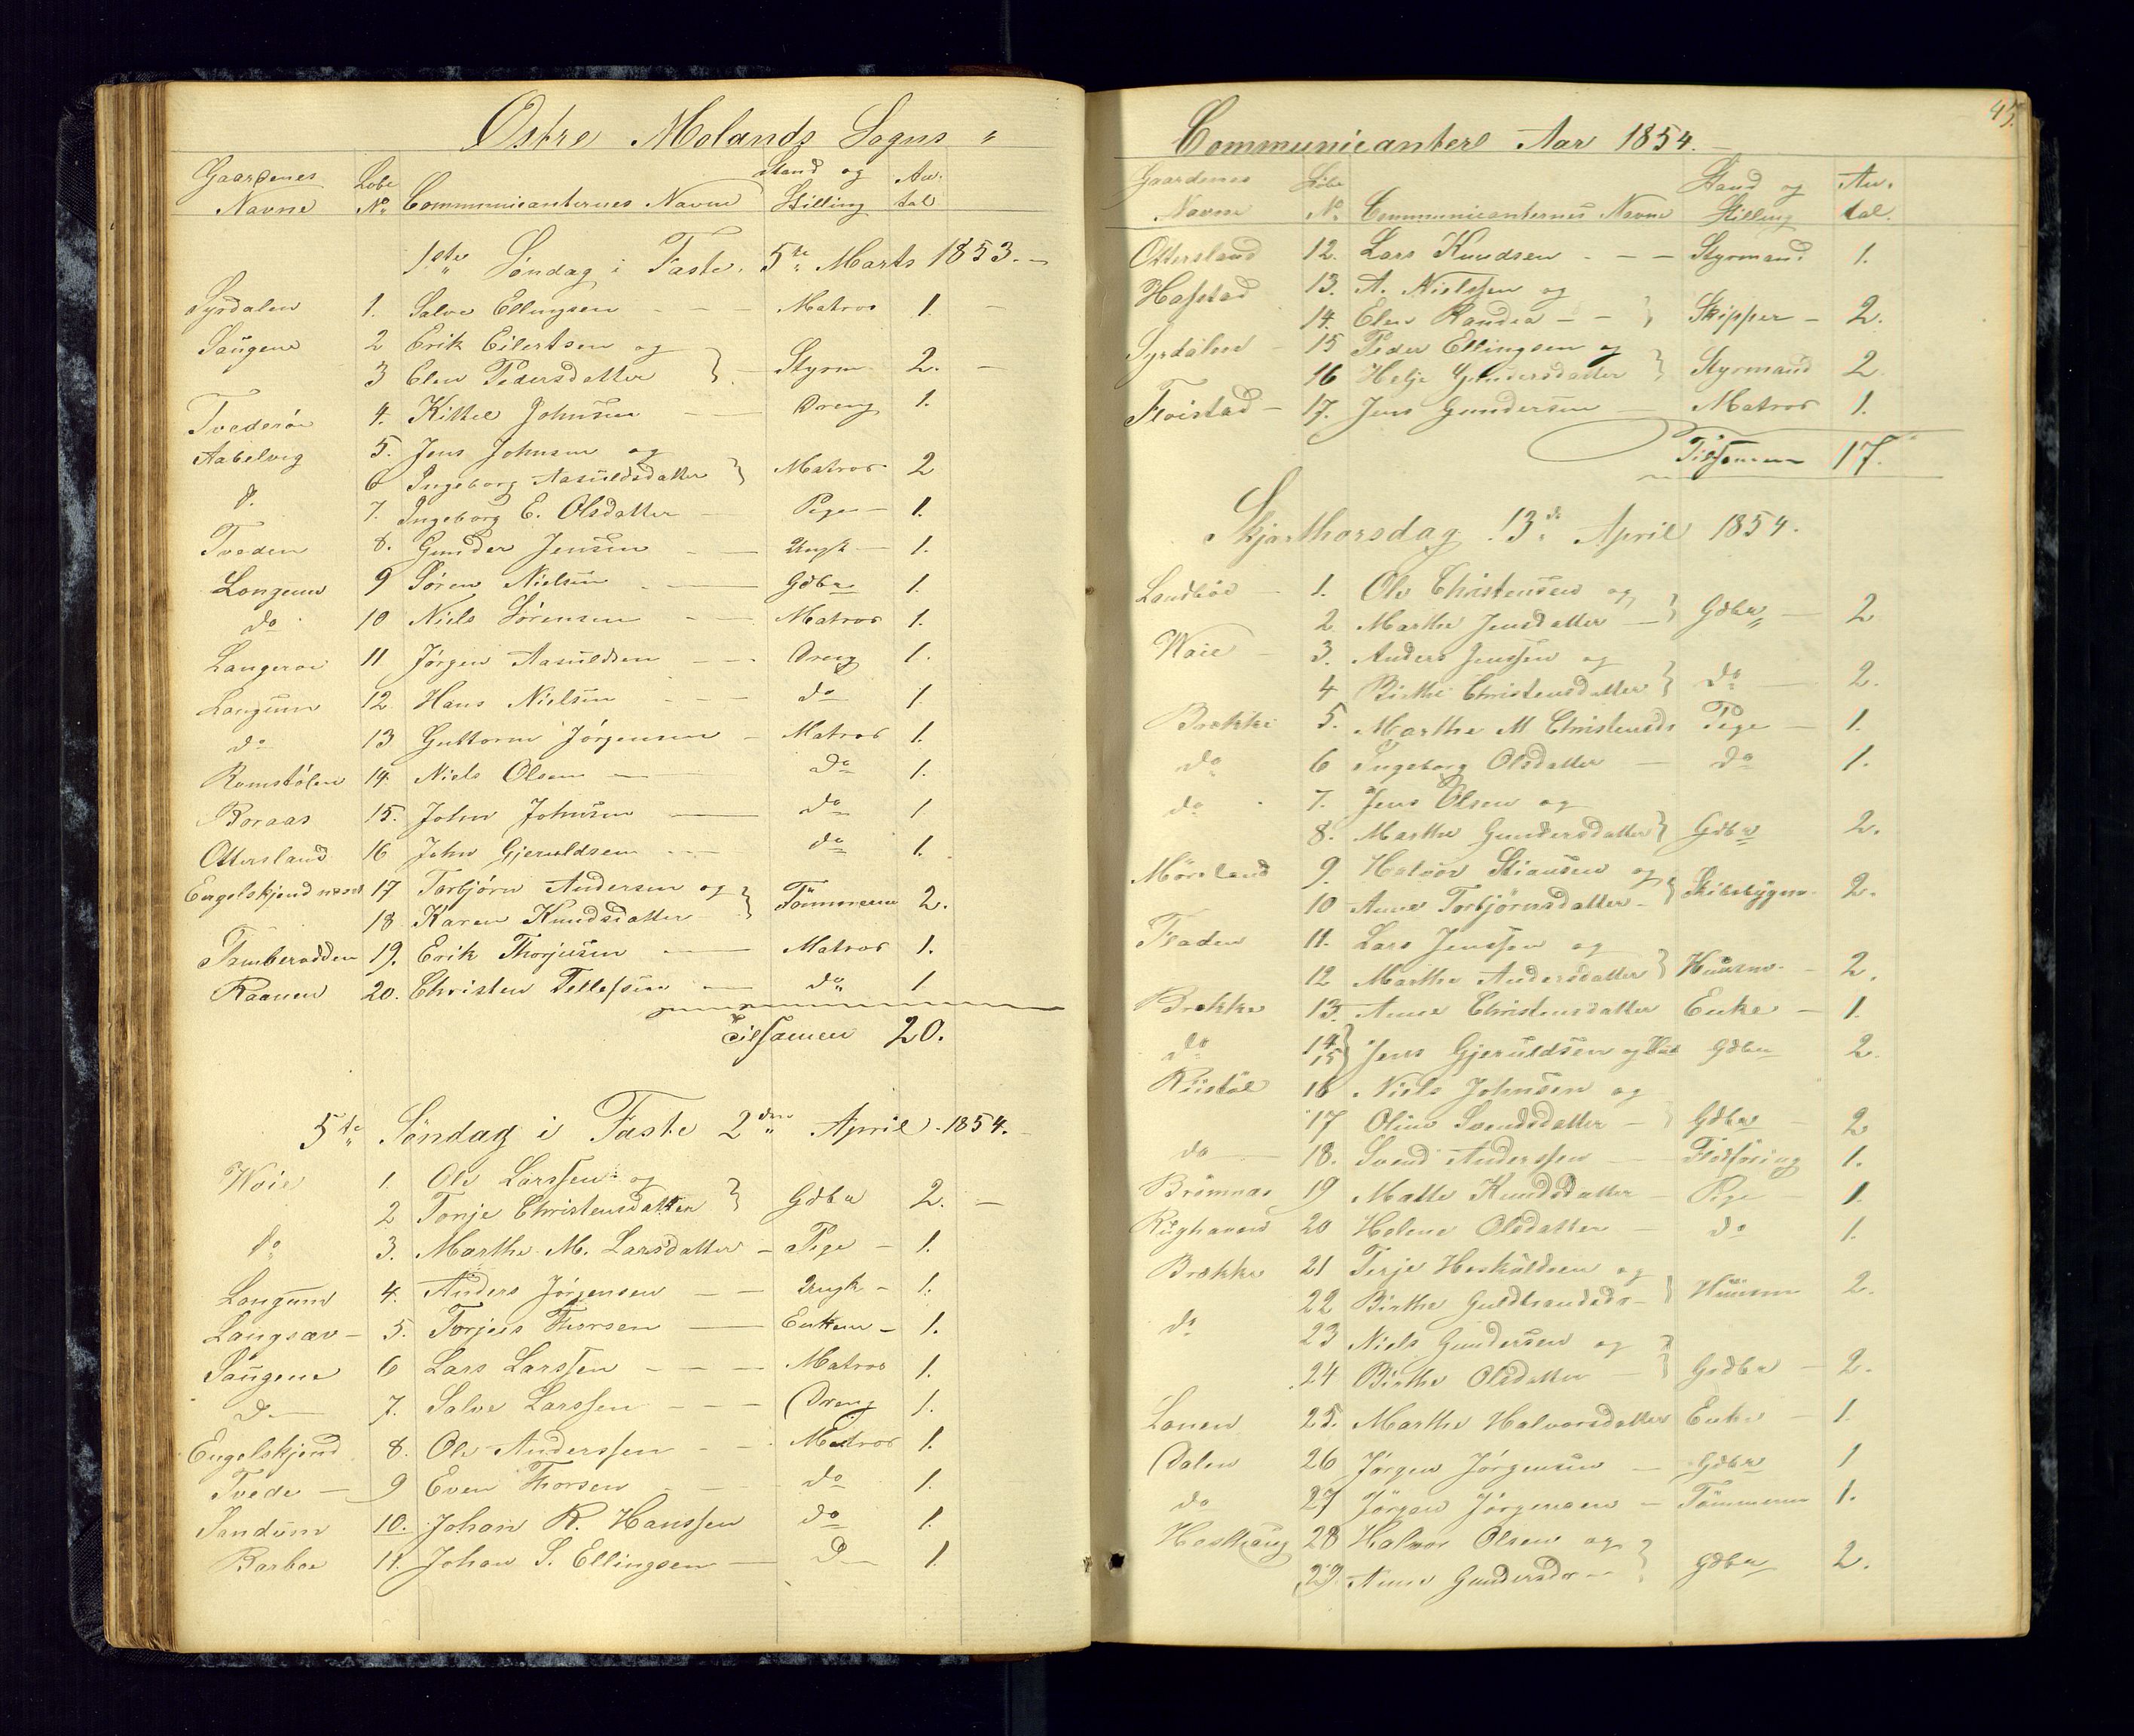 Østre Molands Sogns "
Gaardenes Navne Løbe No Communicanternes Navne Stand og Stilling An- tal
1ste Søndag i Faste. 5te Marts 1853. -
Syrdalen 1. Salve Ellingsen - - - Matros 1. -
Saugene 2 Erik Eilertsen og
3 Elen Pedersdatter } - Styrm. 2. -
Tvederøe 4. Kittel Johnsen - Dreng 1.
Aabelvig 5. Jens Johnsen og
6 Ingeborg Aasuldsdatter } Matros 2
do 7. Ingeborg E. Olsdatter - Pige - 1.
Tveden 8. Gunder Jensen - - Ungk - 1.
Longum 9 Søren Nielsen - - Gdbr 1.
do 10 Niels Sørensen - - Matros 1.
Langerøe 11 Jørgen Aasuldsen - - - Dreng 1.
Longum 12. Hans Nielsen - - do 1.
do 13. Guttorm Jørgensen - Matros 1.
Romstølen 14. Niels Olsen - - do 1.
Boraas 15. John Johnsen - do 1
Ottersland 16 John Gjeruldsen - - do 1.
Engelskjend næset 17 Torbjørn Andersen og
18 Karen Knudsdatter } Tømmerm 2.
Tamberodden 19. Erik Thorjusen - Matros 1.
Raanen 20. Christen Tellefsen - do 1
Tilsamen 20.
5te Søndag i Faste 2den April 1854. -
Woie 1. Ole Larssen og
2 Tonje Christensdatter } Gdbr 2. -
do 3. Marthe M. Larsdatter - Pige - 1.
Longum 4. Anders Jørgensen - - Ungk - 1.
Langsæv - 5. Torjus Thorsen - Enkem - 1.
Saugene 6 Lars Larssen - - - Matros 1.
d - 7. Salve Larssen - - - Dreng 1.
Engelskjend 8. Ole Anderssen - - Matros 1.
Tvede - 9 Even Thorsen - - do 1.
Sandum 10. Johan R. Hanssen do 1.
Barboe 11. Johan S. Ellingsen - D - 1.
45.
Communicantere Aar 1854. -
Gaardenes Navne Løbe No Communicanternes Navne Stand og Stilling An- tal.
Ottersland 12. Lars Knudsen - - - Styrmand 1.
Hafstad 13. A. Nielssen og
14. Elen Randea - - } Skipper - 2.
Syrdalen - 15 Peder Ellingsen og
16 Helje Gundersdatter } Styrmand 2
Fløistad - 17. Jens Gundersen - Matros 1.
Tilsamen 17.
Skjærthorsdag 13de April 1854.
Landbøe - 1. Ole Christensen og
2. Marthe Jensdatter - } Gdbr - 2
Woie - 3. Anders Jenssen og
4 Birthe Christensdatter } do - 2.
Brække 5. Marthe M Christensd Pige - 1.
do 6 Ingeborg Olsdatter - do 1.
do 7. Jens Olsen og
8. Marthe Gundersdatter } Gdbr 2.
Møreland 9. Halvor Stiansen og
10 Anne Torbjørnsdatter - } Skibsbygm. 2.
Fladen 11. Lars Jenssen og
12 Marthe Andersdatter } Huusm. - 2.
Brække 13. Anne Christensdatter Enke - 1.
do 14 15 } Jens Gjeruldsen og Gdbr 2.
Riistøl 16 Niels Johnsen og
17 Oline Svendsdatter - } Gdbr - 2
do - 18. Svend Anderssen - Fødføring 1.
Brømnæs 19 Matte Knudsdatter - Pige - 1.
Rughaven 20 Helene Olsdatter - do 1.
Brække 21 Terje Hoskuldsen og
22 Birthe Guldbrandsda - } Huusm 2.
do 23 Niels Gundersen og
24 Birthe Olsdatter - } Gdbr - 2.
Lonen 25. Marthe Halvorsdatter Enke - 1.
Dalen 26 Jørgen Jørgensen - Gdbr 1
do 27 Jørgen Jørgensen - Tømmerm 1.
28 Halvor Olsen og
29 Anne Gundersdr - } Gdbr 2.